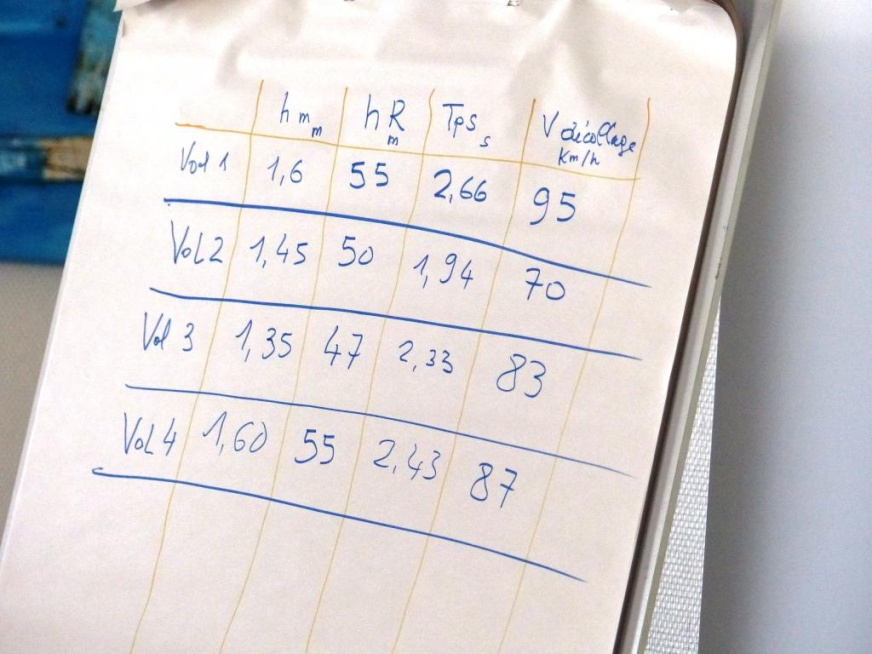 hm m hR m Tps s V décollage Km/h
Vol 1 1,6 55 2,66 95
Vol 2 1,45 50 1,94 70
Vol 3 1,35 47 2,33 83
Vol 4 1,60 55 2,43 87